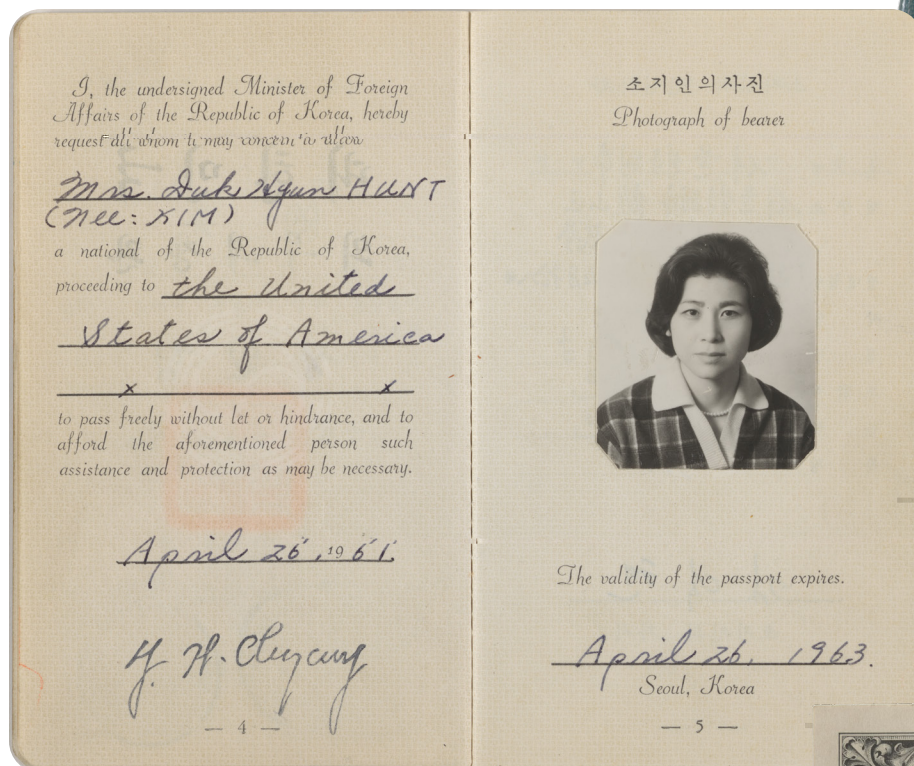 I, the undersigned Minister of Foreign
Affairs of the Republic of Korea, hereby
request all whom it may concern to allow
Mrs. Duk Hyun HUNT
(Nee: KIM)
a national of the Republic of Korea,
proceeding to the United
States of America
x x
to pass freely without let or hindrance, and to
afford the aforementioned person such
assistance and protection as may be necessary.
April 26, 19 61.
— 4 —
소지인의사진
Photograph of bearer
The validity of the passport expires.
April 26, 1963.
Seoul, Korea
— 5 —